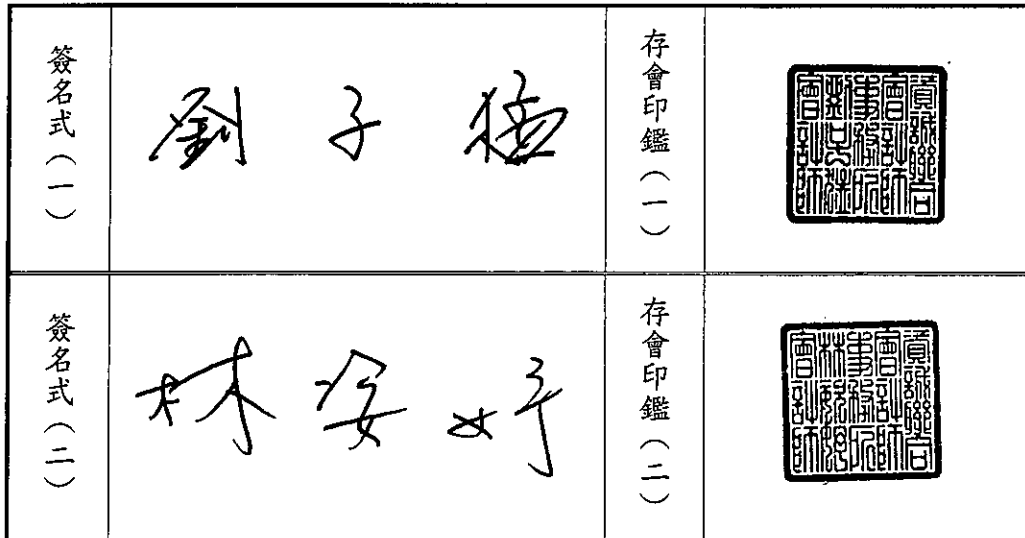 簽名式(一)
劉子猛
存會印鑑(一)
資誠聯合
會計師
事務所
劉子猛
會計師
簽名式(二)
林姿妤
存會印鑑(二)
資誠聯合
會計師
事務所
林姿妤
會計師